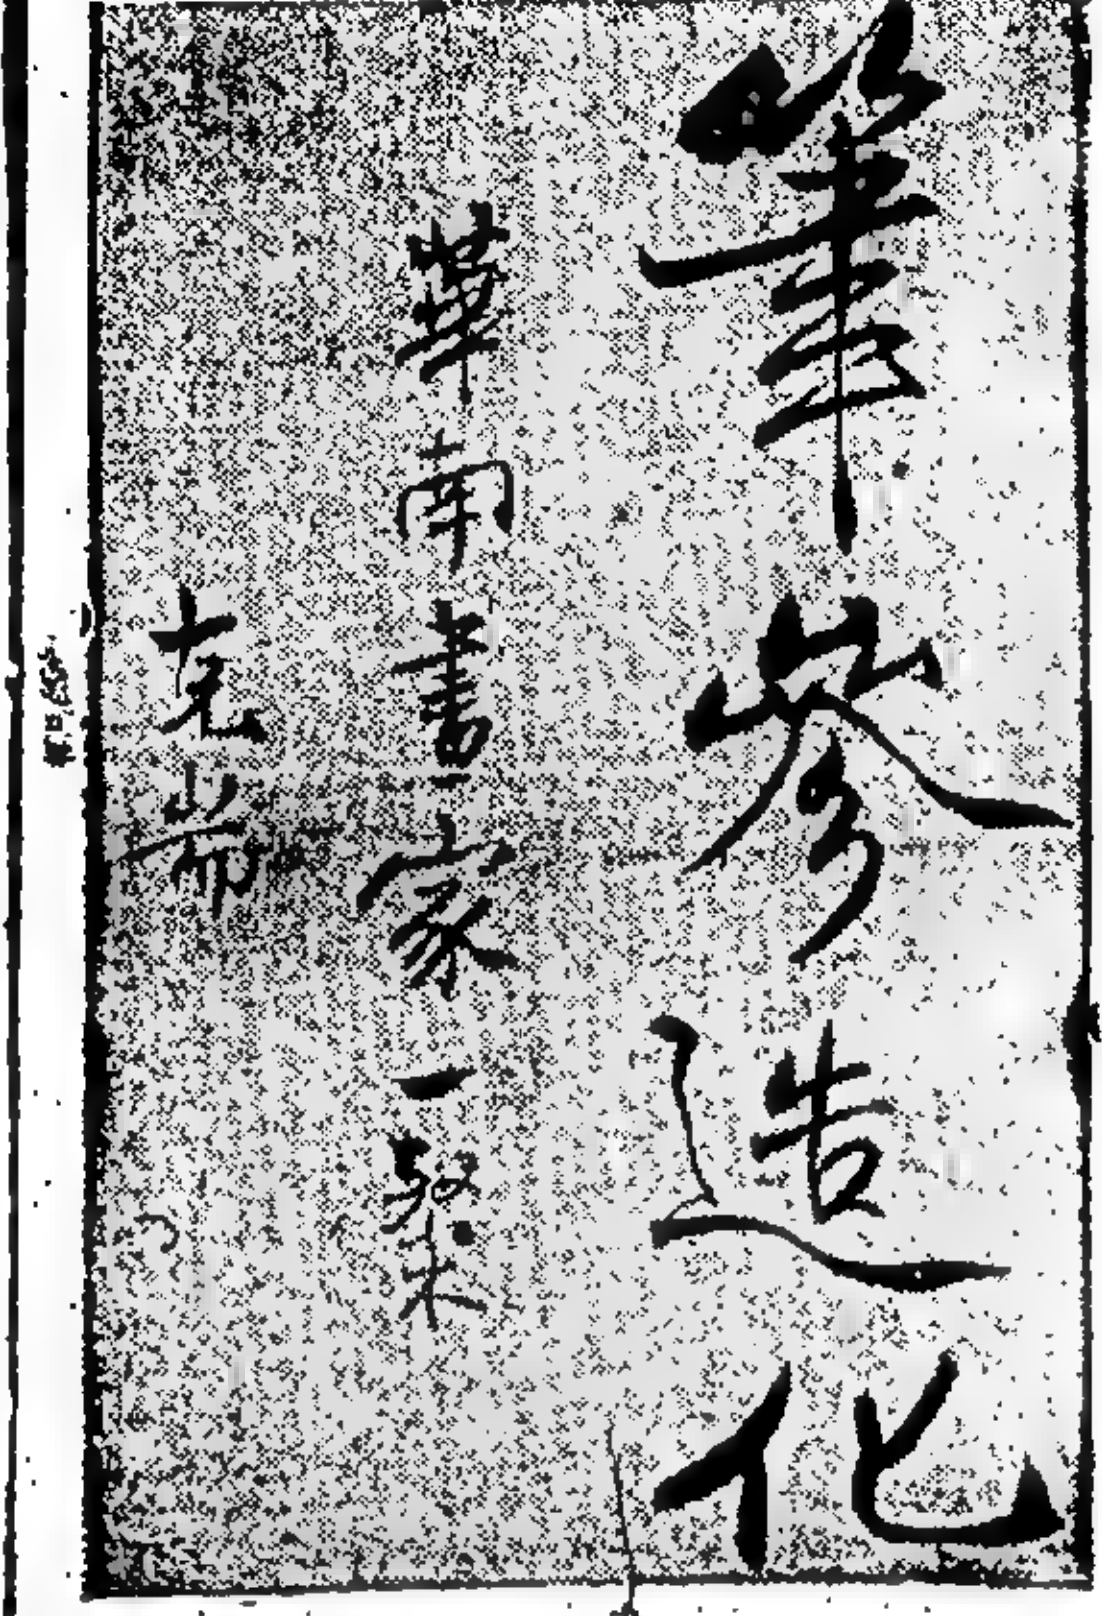 筆參造化
華南書家一覽
克耑